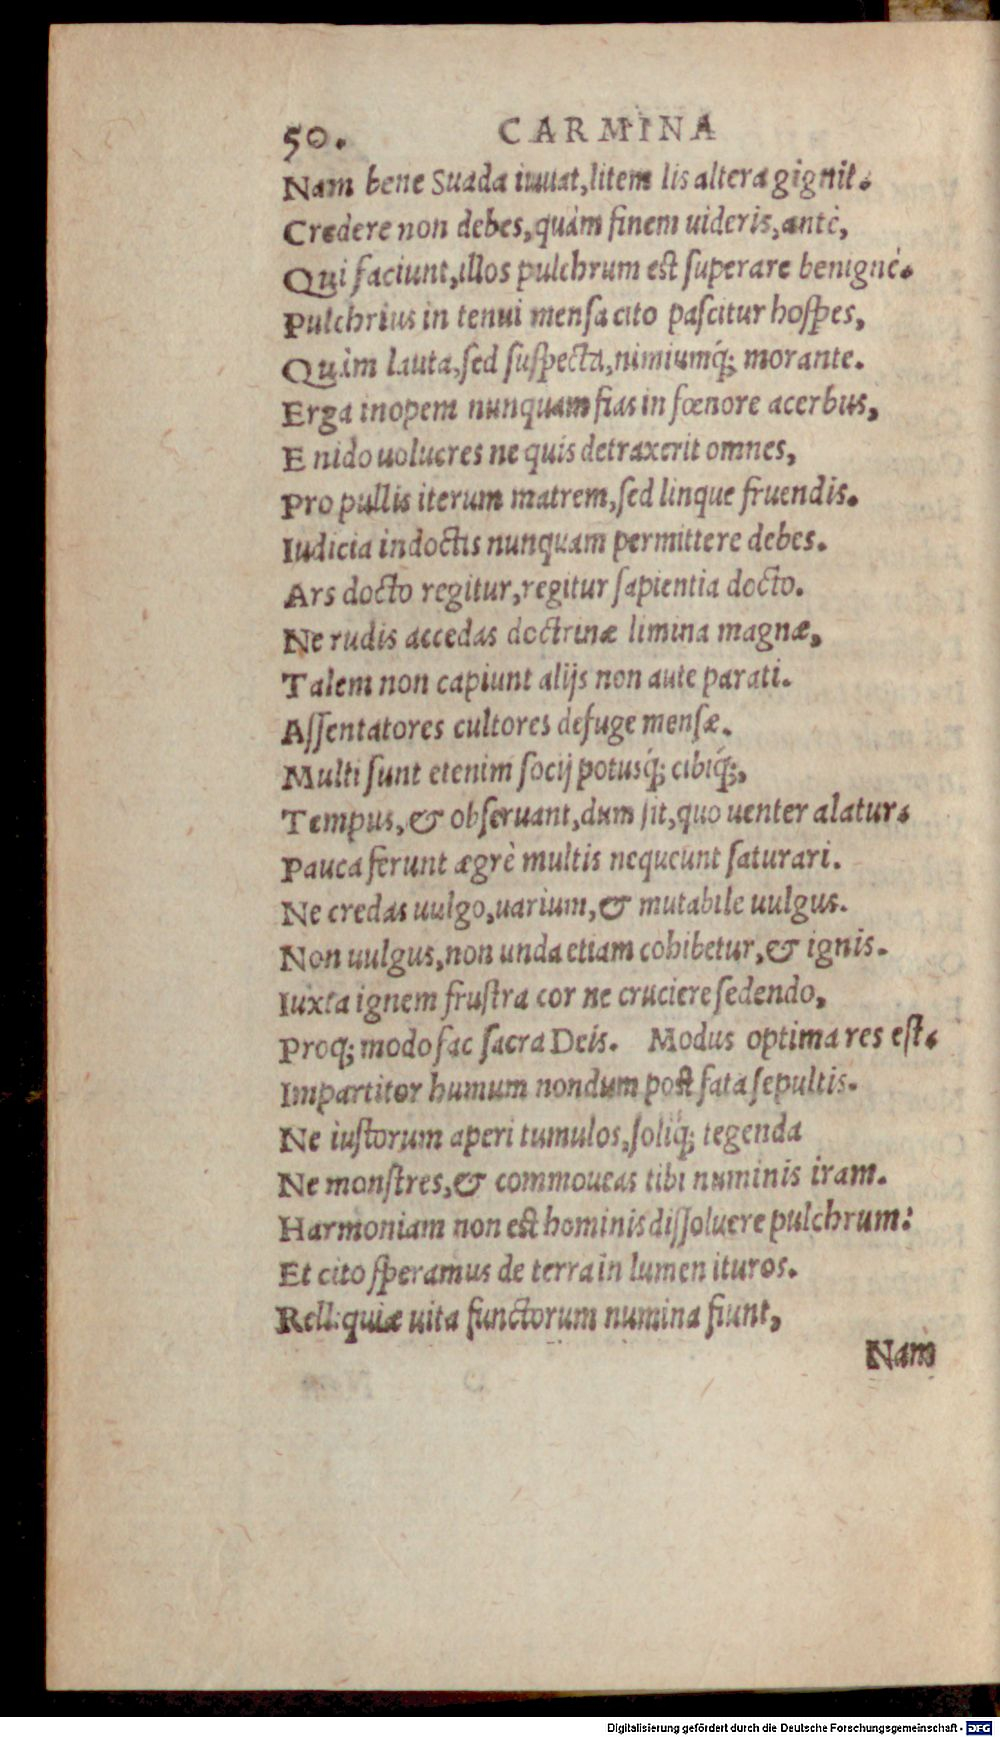 50. CARMINA
Nam bene Suada iuuat, litem lis altera gignit.
Credere non debes, quàm finem uideris, antè,
Qui faciunt, illos pulchrum est superare benignè.
Pulchrius in tenui mensa cito pascitur hospes,
Quàm lauta, sed suspecta, nimiumq́; morante.
Erga inopem nunquam fias in fœnore acerbus,
E nido uolucres ne quis detraxerit omnes,
Pro pullis iterum matrem, sed linque fruendis.
Iudicia indoctis nunquam permittere debes.
Ars docto regitur, regitur sapientia docto.
Ne rudis accedas doctrinæ limina magnæ,
Talem non capiunt alijs non aute parati.
Assentatores cultores defuge mensæ.
Multi sunt etenim socij potusq́; cibiq́;,
Tempus, & obseruant, dum sit, quo uenter alatur.
Pauca ferunt ægrè multis nequeunt saturari.
Ne credas uulgo, uarium, & mutabile uulgus.
Non uulgus, non unda etiam cohibetur, & ignis.
Iuxta ignem frustra cor ne cruciere sedendo,
Proq; modo fac sacra Deis. Modus optima res est.
Impartitor humum nondum post fata sepultis.
Ne iustorum aperi tumulos, soliq́; tegenda
Ne monstres, & commoueas tibi numinis iram.
Harmoniam non est hominis dissoluere pulchrum:
Et cito speramus de terra in lumen ituros.
Relliquiæ uita functorum numina fiunt,
Nam
Digitalisierung gefördert durch die Deutsche Forschungsgemeinschaft - DFG